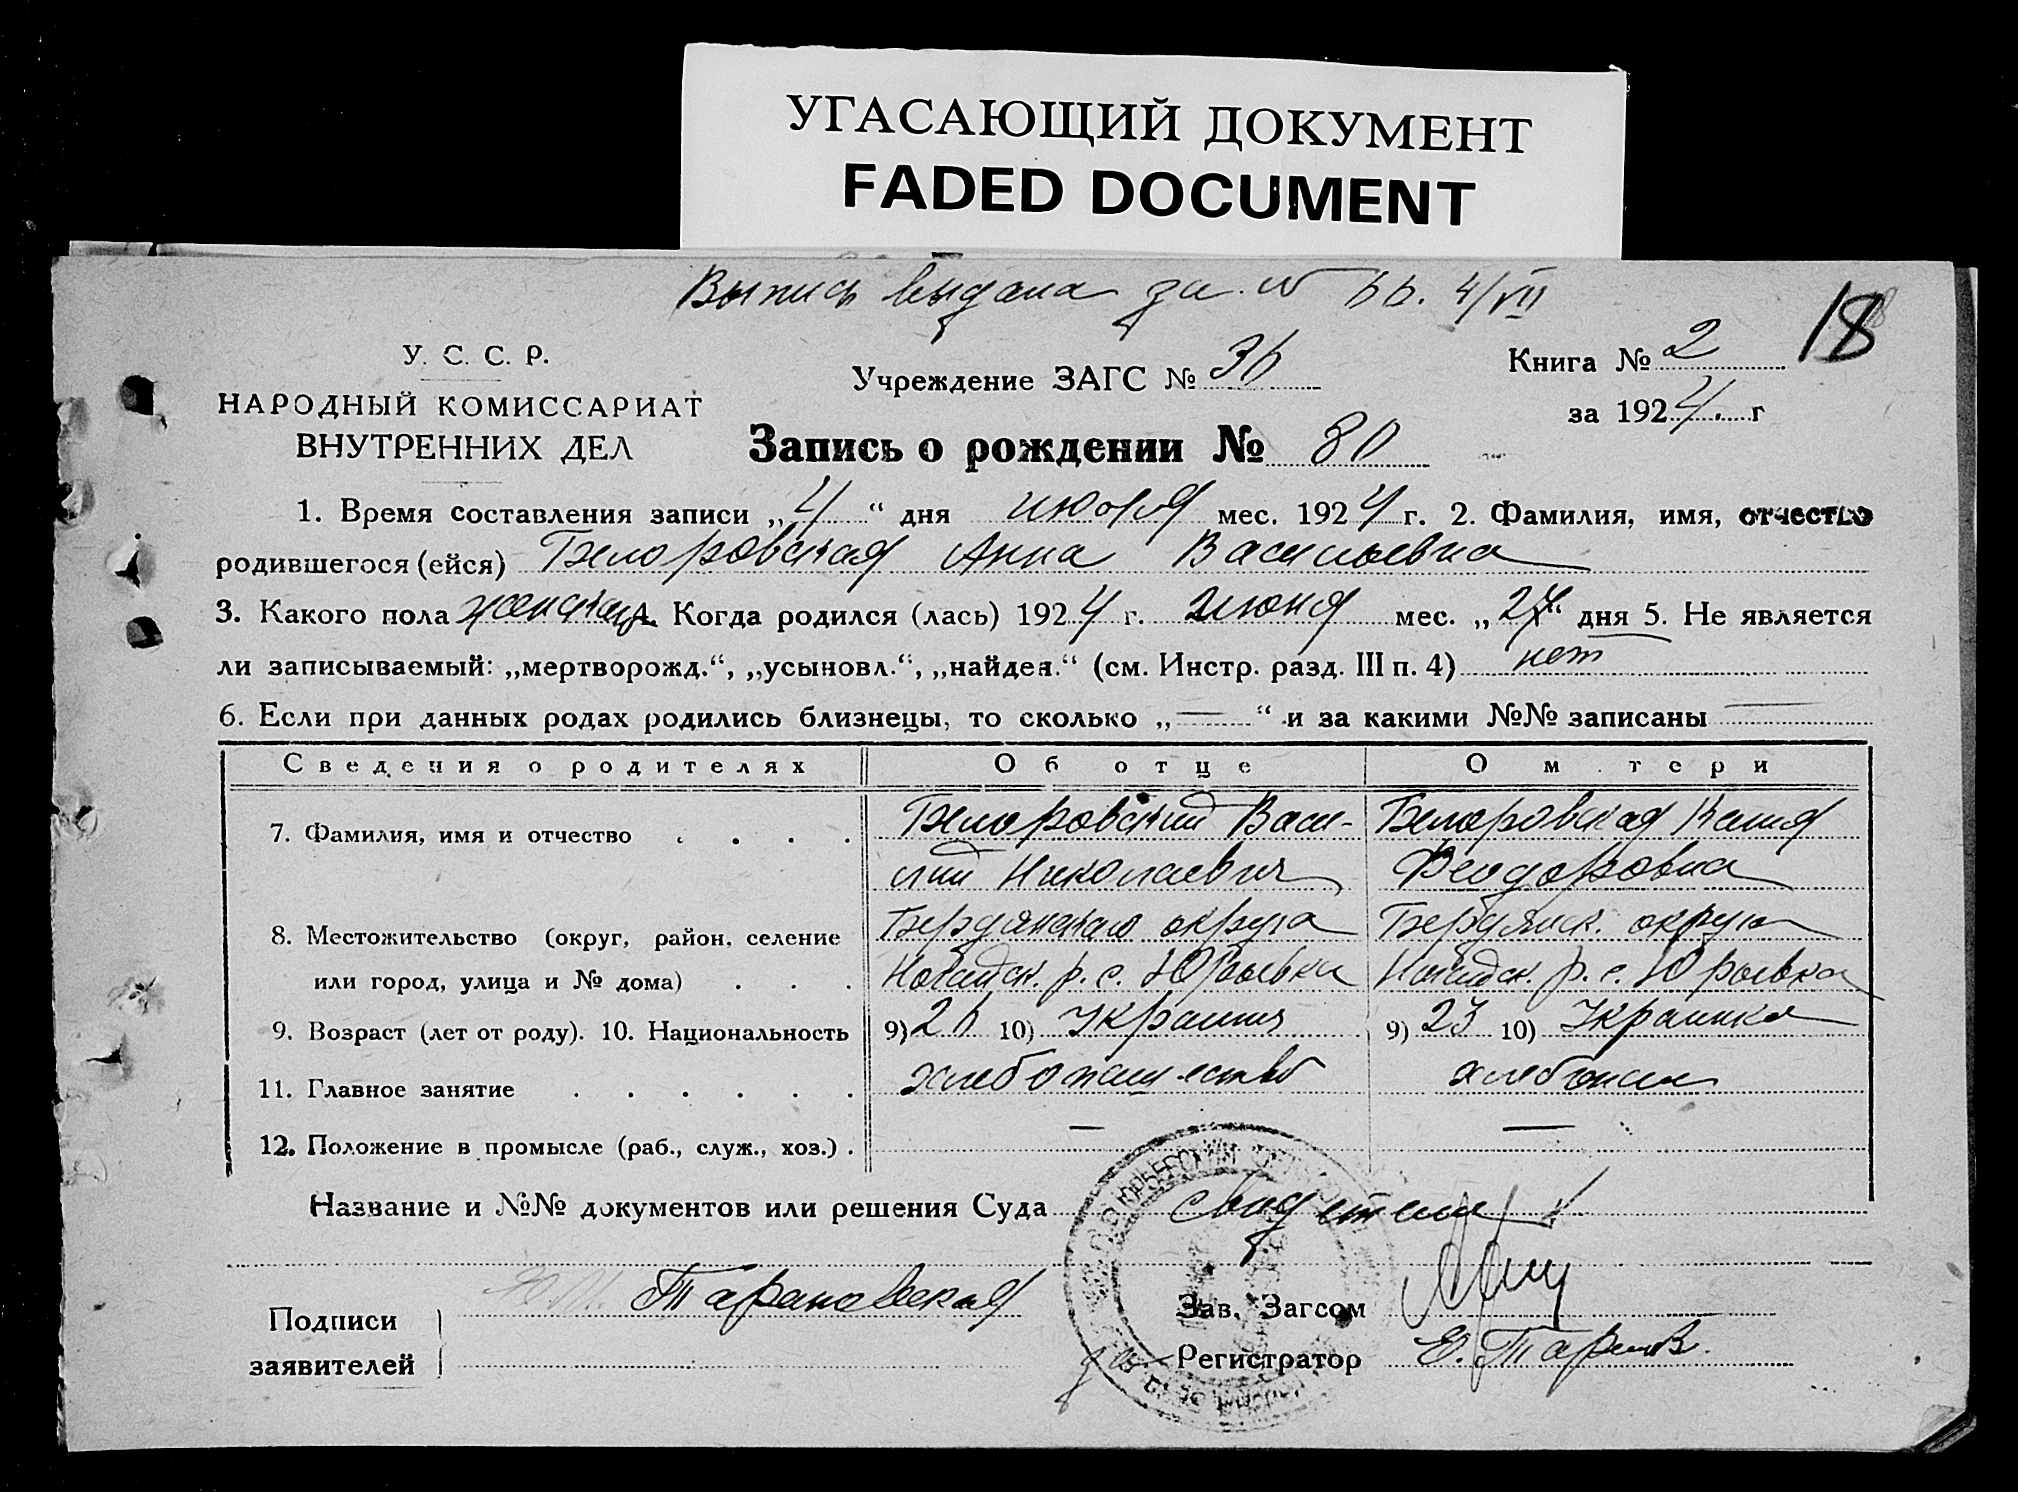 УГАСАЮЩИЙ ДОКУМЕНТ
FADED DOCUMENT
Выпись выдана за № 66. 4/VII
18
У. С. С. Р.
НАРОДНЫЙ КОМИССАРИАТ
ВНУТРЕННИХ ДЕЛ
Учреждение ЗАГС № 36
Книга № 2
за 1924 г
Запись о рождении № 80
1. Время составления записи „4“ дня июля мес. 1924 г. 2. Фамилия, имя, отчество
родившегося (ейся) Анна Васильевна
3. Какого пола женский 4. Когда родился (лась) 1924 г. июня мес. „27“ дня 5. Не является
ли записываемый: „мертворожд.“, „усыновл.“, „найден.“ (см. Инстр. разд. III п. 4) нет
6. Если при данных родах родились близнецы, то сколько „—“ и за какими №№ записаны —
Сведения о родителях Об отце О м тери
7. Фамилия, имя и отчество Васи-
лий Николаевич Феодоровна
8. Местожительство (округ, район, селение Бердянского округа Бердянск. округа
или город, улица и № дома) Ногайск. р. с. Юрьевка Ногайск. р. с. Юрьевка
9. Возраст (лет от роду). 10. Национальность 9) 26 10) Украинец 9) 23 10) Украинка
11. Главное занятие хлебопашество хлебопаш
12. Положение в промысле (раб., служ., хоз.) — —
Название и №№ документов или решения Суда свидетели
Подписи
заявителей
Тарановская
Зав. Загсом
Регистратор Е.